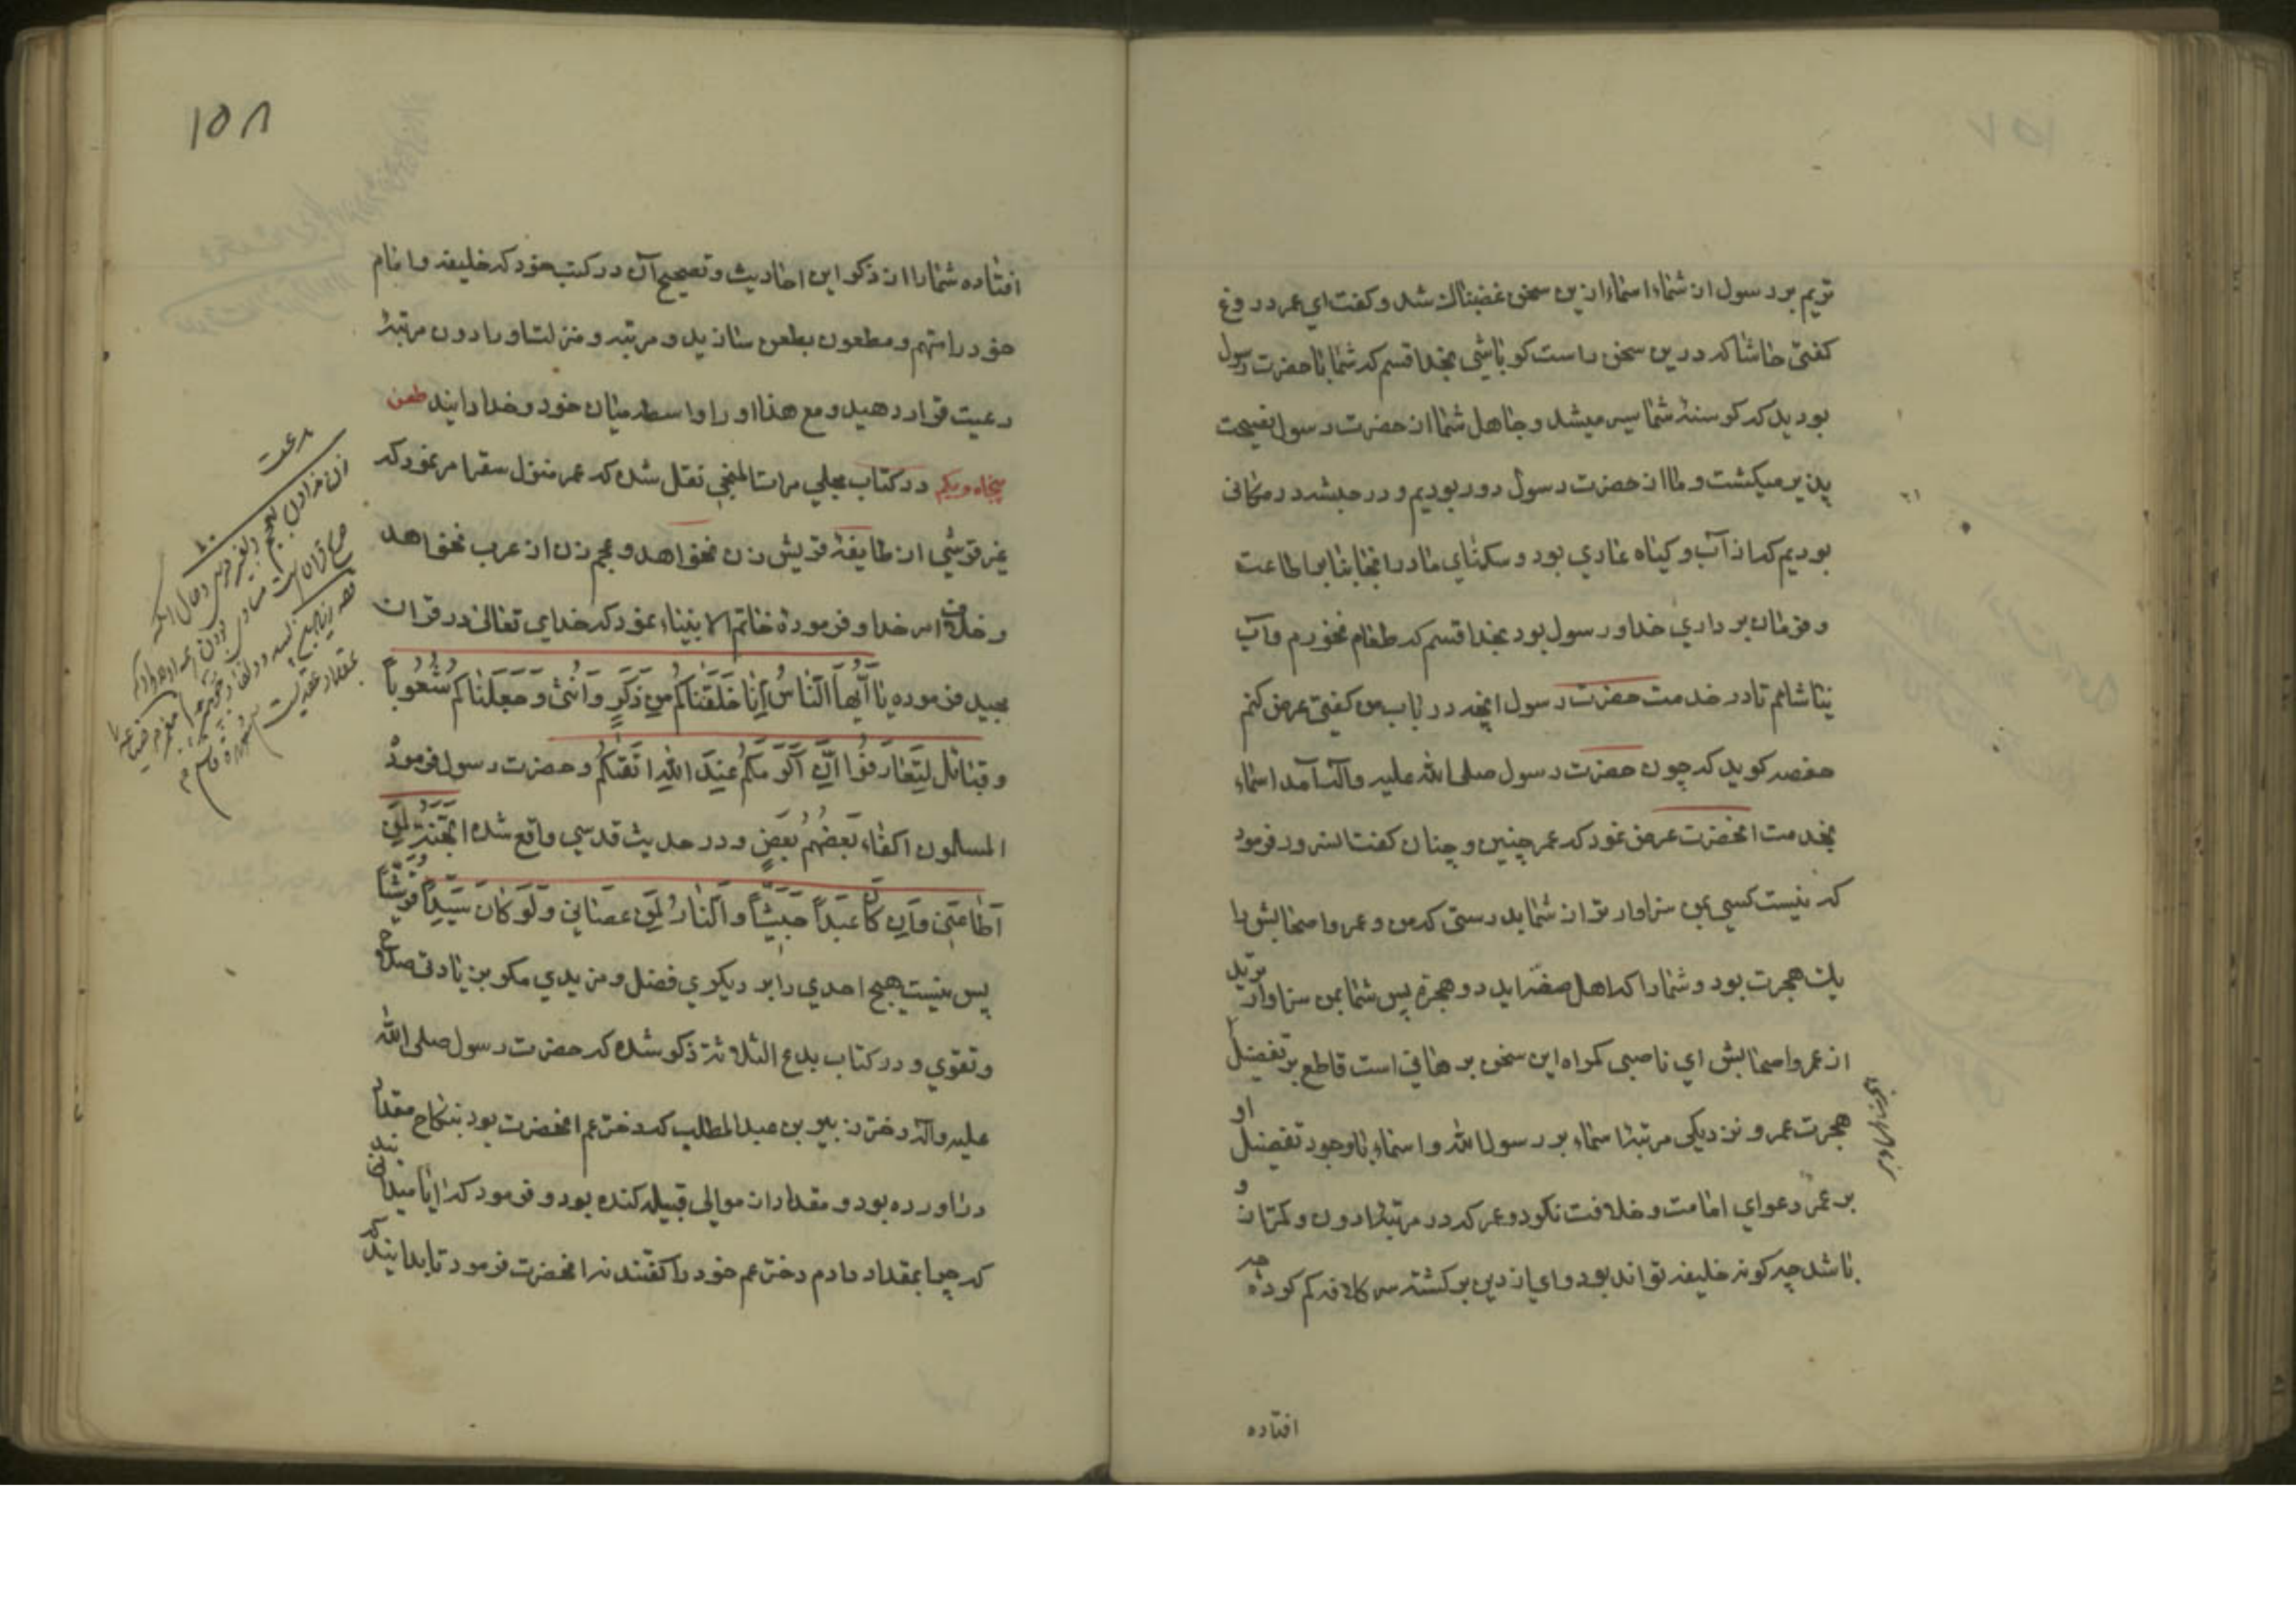 تریم بر رسول از شما، اسماء ازین سخن غضبناك شد و کفت ای عمر دروغ
کفتی حاشا که درین سخن راست کو باشی بخدا قسم که شما با حضرت رسول
بودید که کرسنهٔ شما سیر میشد و جاهل شما از حضرت رسول نصیحت
پذیر میکشت و ما از حضرت رسول دور بودیم و در حبشه در مکانی
بودیم که از آب و کیاه عاری بود و سکنای ما در انجا بنابر اطاعت
و فرمان برداری خدا و رسول بود بخدا قسم که طعام نخورم و آب
نیاشامم تا در خدمت حضرت رسول انچه در باب من کفتی عرض کنم
حفصه کوید که چون حضرت رسول صلی الله علیه وآله آمد اسماء
بخدمت انحضرت عرض نمود که عمر چنین و چنان کفت انسرور فرمود
که نیست کسی بمن سزاوارتر از شما بدرستی که من و عمر و اصحابش را
یك هجرت بود و شما را که اهل صفه اید دو هجرة پس شما بمن سزاوارترید
از عمر و اصحابش ای ناصبی کمراه این سخن برهانی است قاطع بر تفضیل
هجرت عمر و نزدیکی مرتبهٔ اسماء بر رسول الله و اسماء با وجود تفضیل او
بر عمر دعوای امامت و خلافت نکرد و عمر که در مرتبهٔ ادون و کمتر از و
باشد چه کونه خلیفه تواند بود وای از دین برکشته سر کلافه کم کرده چه
افتاده
۱۵۸
افتاده شما را از ذکر این احادیث و تصحیح آن در کتب خود که خلیفه و امام
خود را متهم و مطعون بطعن سازید و مرتبه و منزلت او را دون مرتبهٔ
رعیت قرار دهید و مع هذا او را واسطه میان خود و خدا دانید طعن
پنجاه و یکم در کتاب مجلی مرات المنجی نقل شده که عمر منزل سقر امر نمود که
غیر قرشی از طایفهٔ قریش زن نخواهد و عجم زن از عرب نخواهد
و خلاف امر خدا و فرمودهٔ خاتم الانبیاء نمود که خدای تعالی در قران
مجید فرموده يَا أَيُّهَا النَّاسُ إِنَّا خَلَقْنَاكُمْ مِنْ ذَكَرٍ وَأُنْثَى وَجَعَلْنَاكُمْ شُعُوبًا
وقبائل لِتَعَارَفُوا إِنَّ أَكْرَمَكُمْ عِنْدَ اللهِ أَتْقَيكُمْ و حضرت رسول فرموده
المسلمون اکفاء بَعْضُهُمْ بَعْضٍ و در حدیث قدسی واقع شده الجَنَّةُ لِمَنْ
أَطَاعَنِي وَإِنْ كَانَ عَبْدًا حَبَشِيًّا وَالنَّارُ لِمَنْ عَصَانِي وَلَوْ كَانَ سَيِّدًا قُرَشِيًّا
پس نیست هیچ احدی را بر دیکری فضل و مزیدی مکر بزیادتی صلاح
و تقوی و در کتاب بدع الثلاثة ذکر شده که حضرت رسول صلی الله
علیه وآله دختر زبیر بن عبد المطلب که دختر عم انحضرت بود بنکاح مقداد
در اورده بود و مقداد از موالی قبیله کنده بود و فرمود که ایا میدانید
که چرا بمقداد دادم دختر عم خود را کفتند نه انحضرت فرمود تا بدانید که